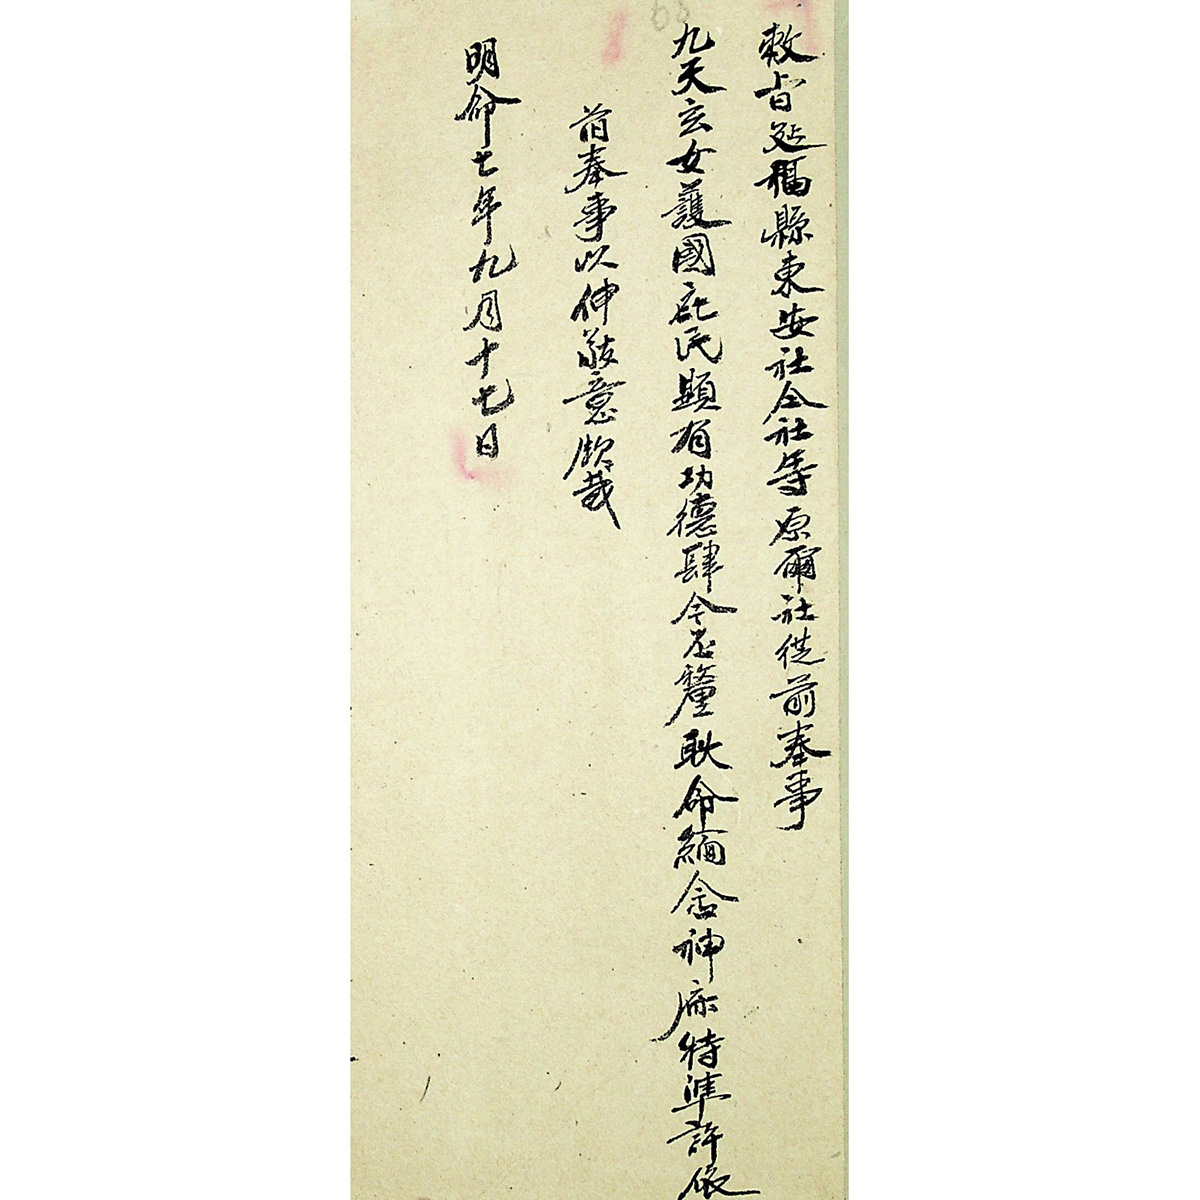 敕旨延福縣東安社仝社等原爾社從前奉事
九天玄女護國庇民顯有功德肆今丕釐耿命緬念神庥特準許依
前奉事以伸敬意欽哉
明命七年九月十七日
68